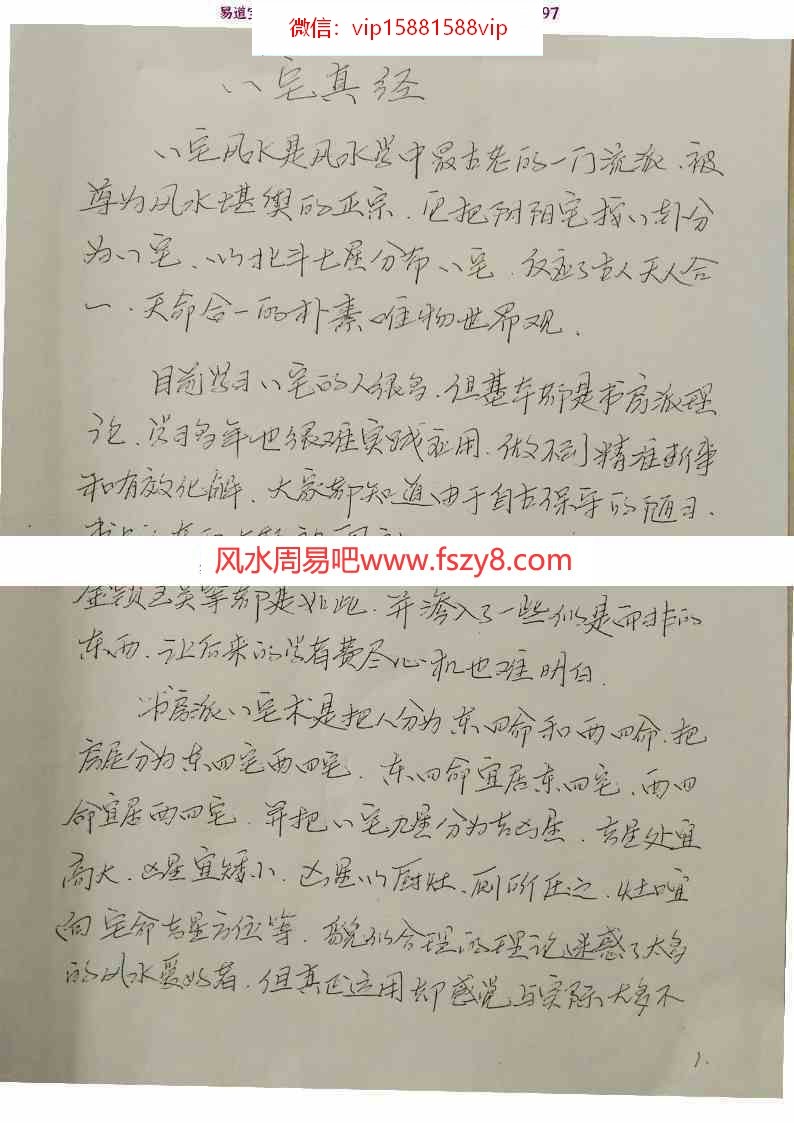 易道
97
微信：vip15881588vip
八宅真经
八宅风水是风水学中最古老的一门流派、被
尊为风水堪舆的正宗、它把阴阳宅按八卦分
为八宅、以北斗七星分布八宅、反应了古人天人合
一、天命合一的朴素唯物世界观。
目前学习八宅的人很多、但基本都是书房派理
论、学习多年也很难实践应用、做不到精准断事
和有效化解、大家都知道由于自古保守的陋习、
风水周易吧www.fszy8.com
等都是如此、并渗入了一些似是而非的
东西、让后来的学者费尽心机也难明白。
书房派八宅术是把人分为东四命和西四命、把
房屋分为东四宅西四宅、东四命宜居东四宅、西四
命宜居西四宅、并把八宅九星分为吉凶星、吉星处宜
高大、凶星宜矮小、凶星以厨灶、厕所压之、灶口宜
向宅命吉星方位等、貌似合理的理论迷惑了太多
的风水爱好者、但真正运用却感觉与实际大多不
1.